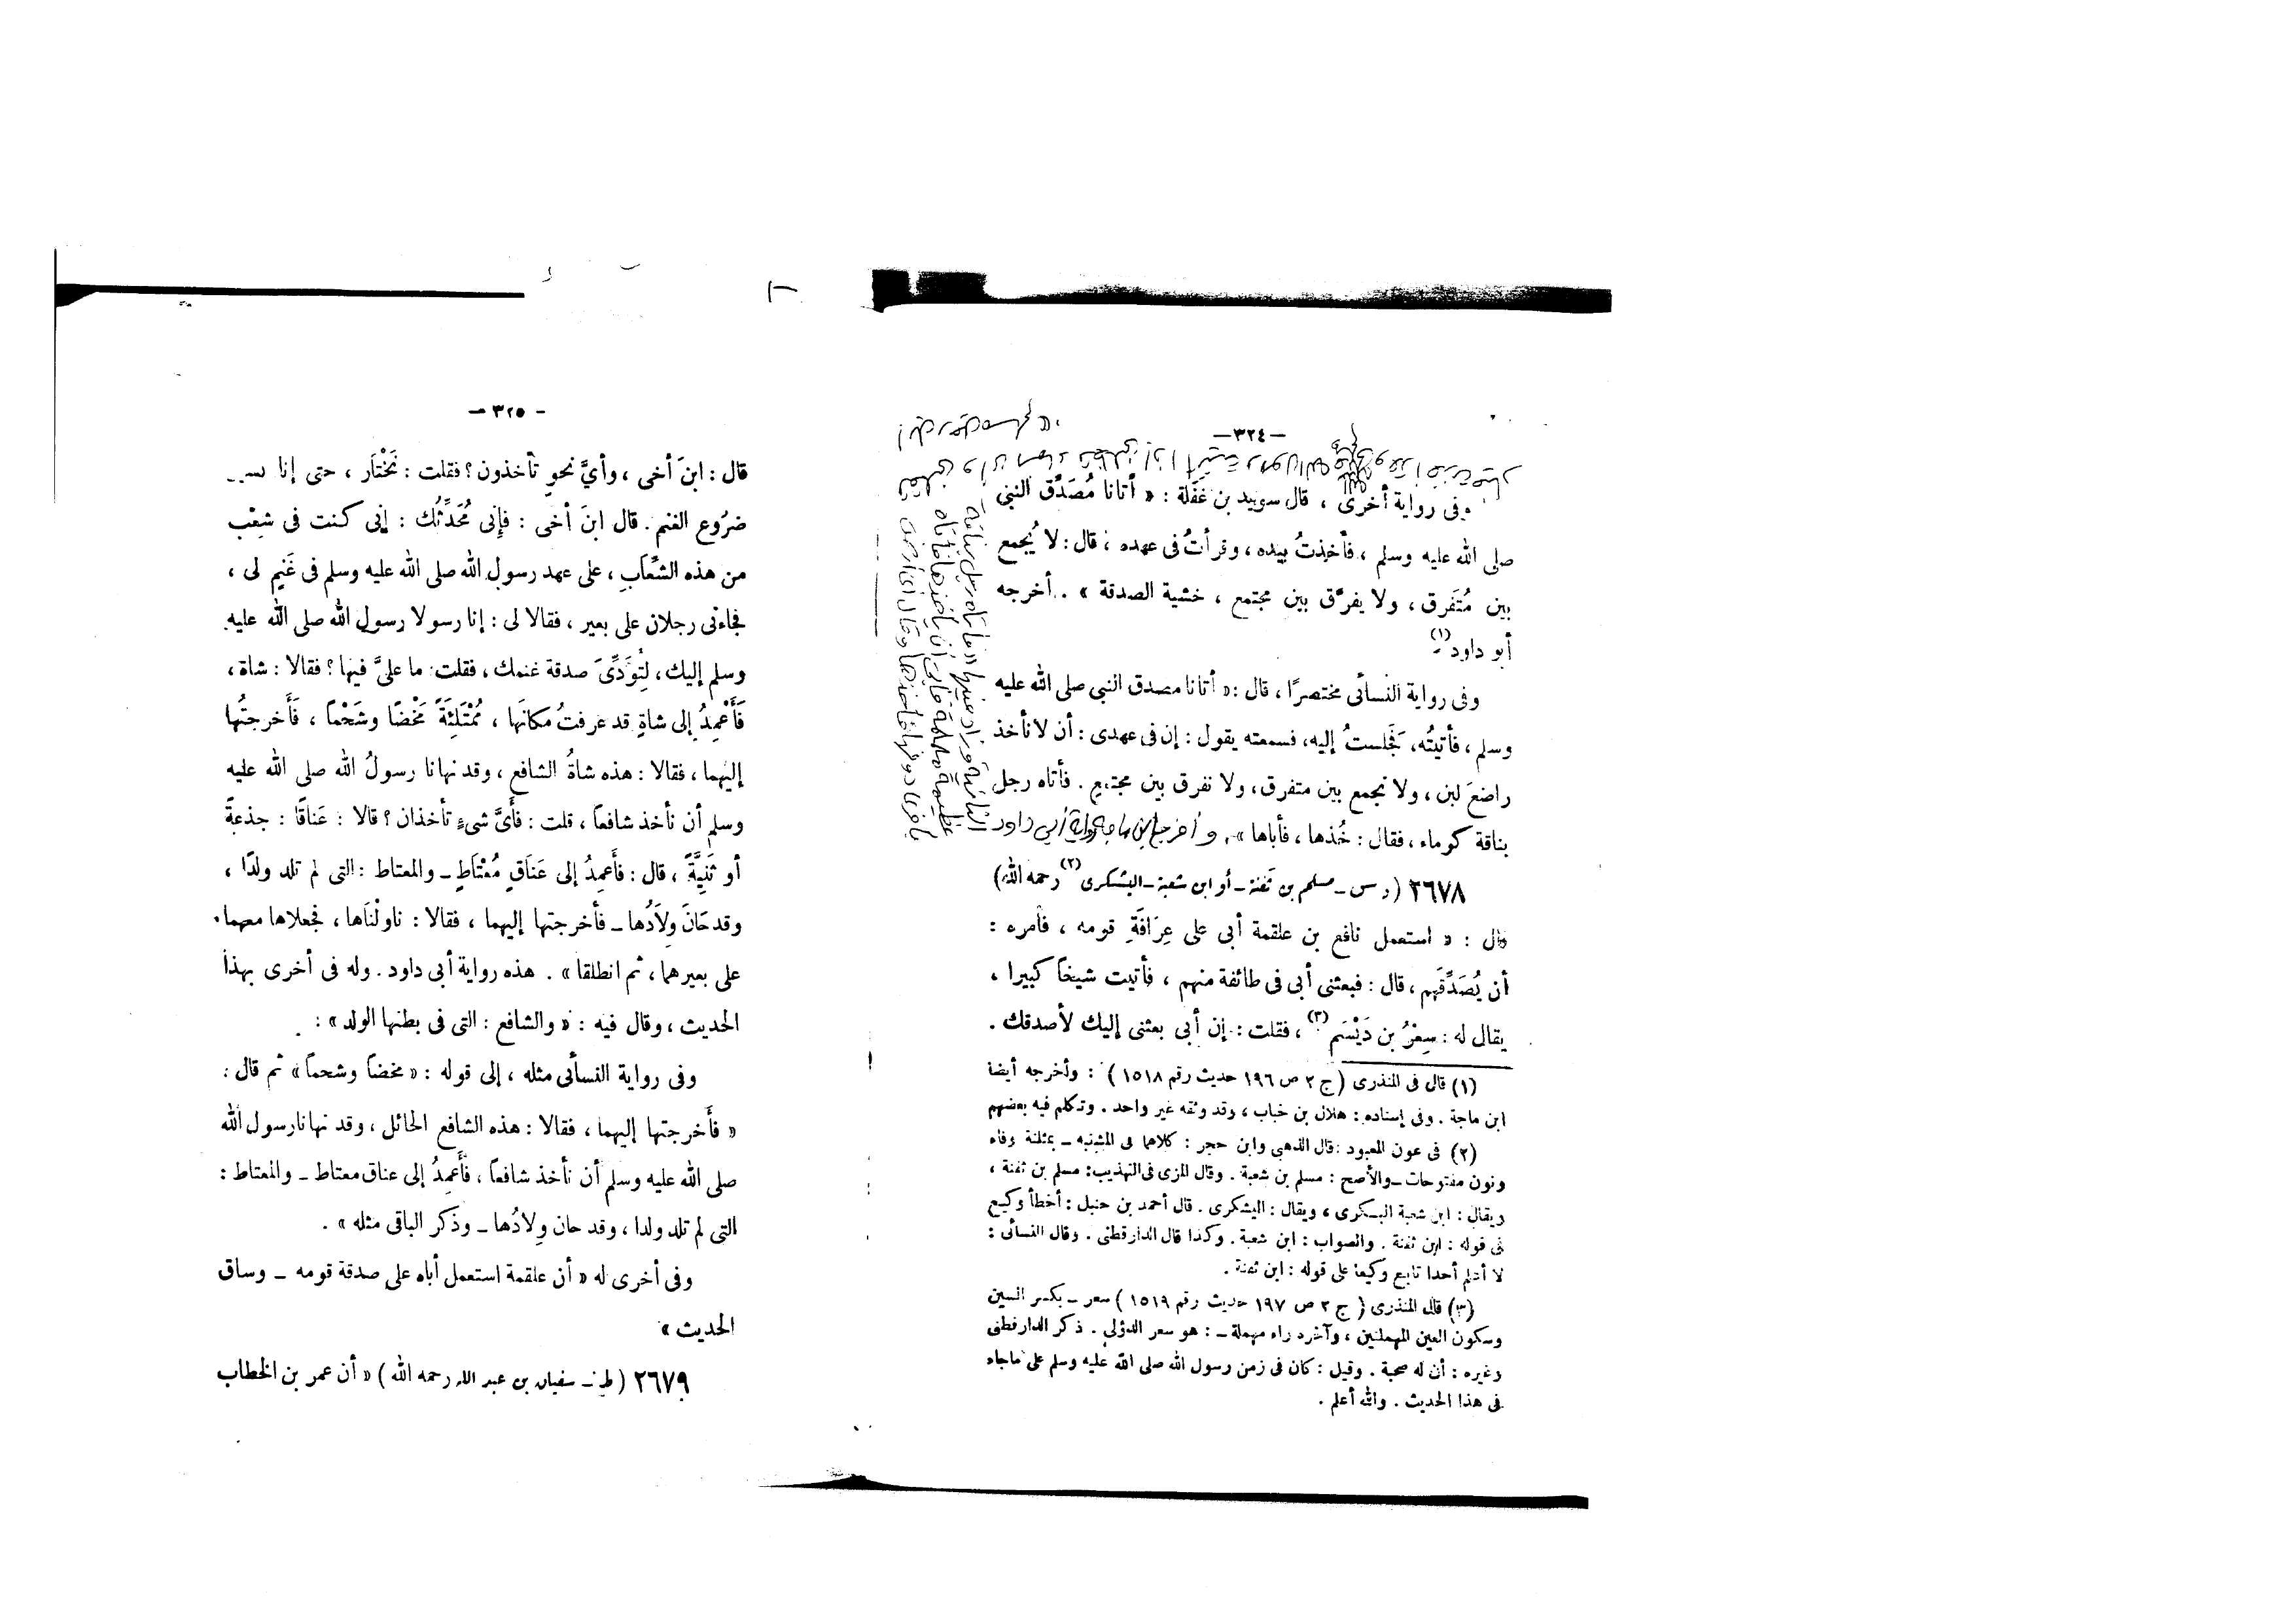 — ٣٢٤ —
وفى رواية أخرى ، قال سويد بن غَفَلة : « أتانا مُصَدِّق النبى
صلى الله عليه وسلم ، فأخذتُ بيده ، وقرأتُ فى عهده ، قال : لا يُجمع
بين مُتَفرق ، ولا يفرَّق بين مجتمع ، خشية الصدقة » . أخرجه
أبو داود (١)
وفى رواية النسأئى مختصرًا ، قال : « أتانا مصدق النبى صلى الله عليه
وسلم ، فأتيتُه ، فجلستُ إليه ، فسمعته يقول : إن فى عهدى : أن لا نأخذ
راضعَ لبن ، ولا نجمع بين متفرق ، ولا نفرق بين مجتمع . فأتاه رجل
بناقة كوماء ، فقال : خُذها ، فأباها » . وأخرج ابن ماجه رواية أبي داود
٢٦٧٨ ( د س ــ مسلم بن ثَفنة ــ أو ابن شعبة ــ اليشكرى (٢) رحمه الله )
قال : « استعمل نافع بن علقمة أبى على عِرَافَةِ قومه ، فأمره :
أن يُصَدِّقَهم ، قال : فبعثنى أبى فى طائفة منهم ، فأتيت شيخاً كبيرا ،
يقال له : سِعْرُ بن دَيْسَم (٣) ، فقلت : إن أبى بعثنى إليك لأصدقك .
(١) قال فى المنذرى ( ج ٢ ص ١٩٦ حديث رقم ١٥١٨ ) : وأخرجه أيضا
ابن ماجة . وفى إسناده : هلال بن خباب ، وقد وثقه غير واحد . وتكلم فيه بعضهم
(٢) فى عون المعبود : قال الذهبى وابن حجر : كلاهما فى المشتبه ــ بمثلثة وفاء
ونون مفتوحات ــ والأصح : مسلم بن شعبة . وقال المزى فى التهذيب : مسلم بن ثفنة ،
ويقال : ابن شعبة البكرى ، ويقال : اليشكرى . قال أحمد بن حنبل : أخطأ وكيع
فى قوله : ابن ثفنة . والصواب : ابن شعبة . وكذا قال الدارقطنى . وقال النسأئى :
لا أعلم أحدا تابع وكيعا على قوله : ابن ثفنة .
(٣) قال المنذرى ( ج ٢ ص ١٩٧ حديث رقم ١٥١٩ ) سعر ــ بكسر السين
وسكون العين المهملتين ، وآخره راء مهملة ــ : هو سعر الدؤلى . ذكر الدارقطنى
وغيره : أن له صحبة . وقيل : كان فى زمن رسول الله صلى الله عليه وسلم على ماجاء
فى هذا الحديث . والله أعلم .
— ٣٢٥ —
قال : ابنَ أخى ، وأىَّ نحوٍ تأخذون ؟ فقلت : نَخْتَار ، حتى إنا
ضرُوع الغنم . قال ابنَ أخى : فإنى مُحَدِّثك : إنى كنت فى شِعْب
من هذه الشِّعَابِ ، على عهد رسول الله صلى الله عليه وسلم فى غَنَمٍ لى ،
فجاءنى رجلان على بعير ، فقالا لى : إنا رسولا رسولِ الله صلى الله عليه
وسلم إليك ، لِتُؤَدِّىَ صدقة غنمك ، فقلت : ما علىَّ فيها ؟ فقالا : شاة ،
فَأَعْمِدُ إلى شاةٍ قد عرفتُ مكانَها ، مُمْتَلِئَةً مَخْضًا وشَحْماً ، فَأَخرجتُها
إليهما ، فقالا : هذه شاةُ الشافع ، وقد نهانا رسولُ الله صلى الله عليه
وسلم أن نأخذ شافعاً ، قلت : فأَىَّ شىءٍ تأخذان ؟ قالا : عَنَاقًا : جذعةً
أو ثَنِيَّةً ، قال : فأَعمِدُ إلى عَنَاقٍ مُعْتَاطٍ ــ والمعتاط : التى لم تلد ولدًا ،
وقد حَانَ وِلاَدُها ــ فأخرجتها إليهما ، فقالا : ناولْنَاها ، فجعلاها معهما
على بعيرهما ، ثم انطلقا » . هذه رواية أبى داود . وله فى أخرى بهذا
الحديث ، وقال فيه : « والشافع : التى فى بطنها الولد » :
وفى رواية النسأئى مثله ، إلى قوله : « مخضاً وشحماً » ثم قال :
« فأَخرجتها إليهما ، فقالا : هذه الشافع الحائل ، وقد نهانا رسول الله
صلى الله عليه وسلم أن نأخذ شافعاً ، فأَعمِدُ إلى عناق معتاط ــ والمعتاط :
التى لم تلد ولدا ، وقد حان وِلادُها ــ وذكر الباقى مثله » .
وفى أخرى له « أن علقمة استعمل أباه على صدقة قومه ــ وساق
الحديث »
٢٦٧٩ ( ط ــ سفيان بن عبد الله رحمه الله ) « أن عمر بن الخطاب